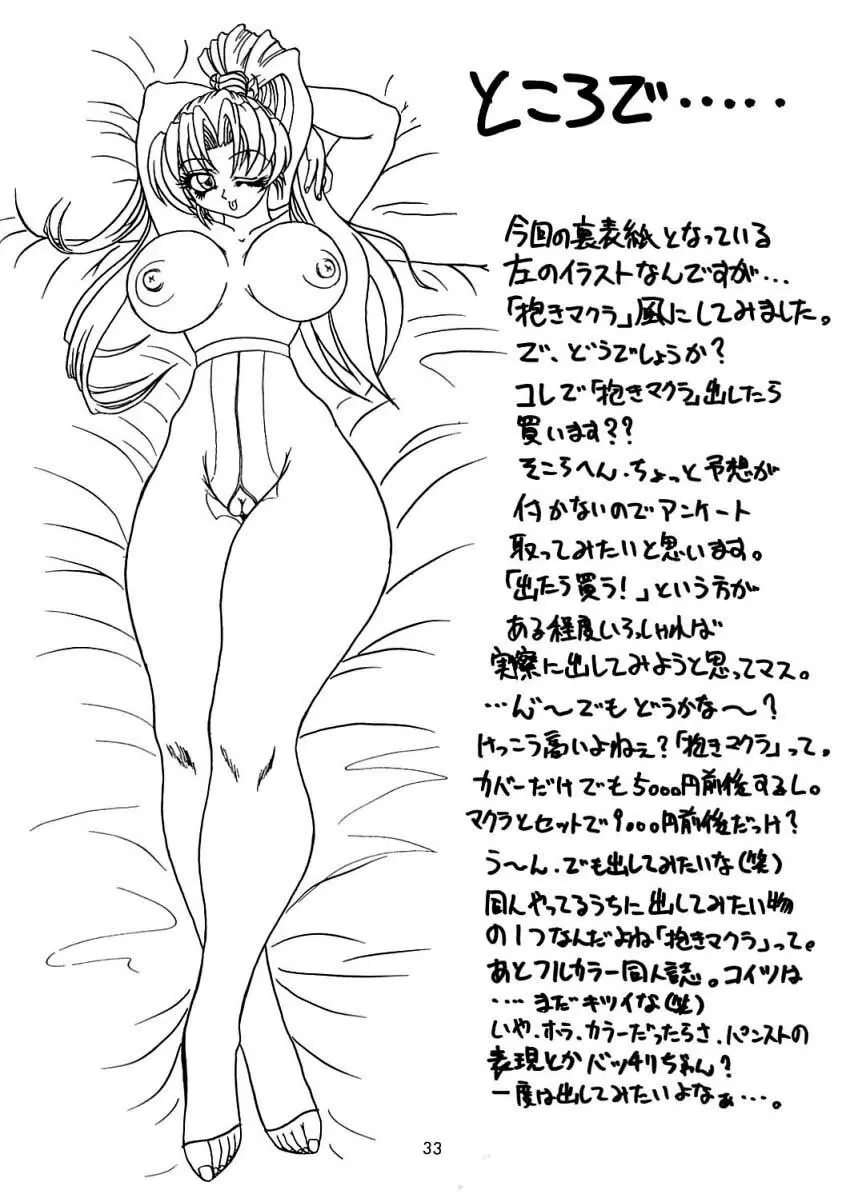 ところで・・・・・
今回の裏表紙となっている
左のイラストなんですが・・・
「抱きマクラ」風にしてみました。
で、どうでしょうか?
コレで「抱きマクラ」出したら
買います??
そこらへん、ちょっと予想が
付かないのでアンケート
取ってみたいと思います。
「出たら買う!」という方が
ある程度いらっしゃれば
実際に出してみようと思ってマス。
・・・ん〜でもどうかな〜?
けっこう高いよねぇ?「抱きマクラ」って。
カバーだけでも5000円前後するし。
マクラとセットで9000円前後だっけ?
う〜ん、でも出してみたいな(笑)
同人やってるうちに出してみたい物
の1つなんだよね「抱きマクラ」って。
あとフルカラー同人誌。コイツは
・・・・まだキツイな(笑)
いや、ホラ、カラーだったらさ、パンストの
表現とかバッチリぢゃん?
一度は出してみたいよなぁ・・・。
33